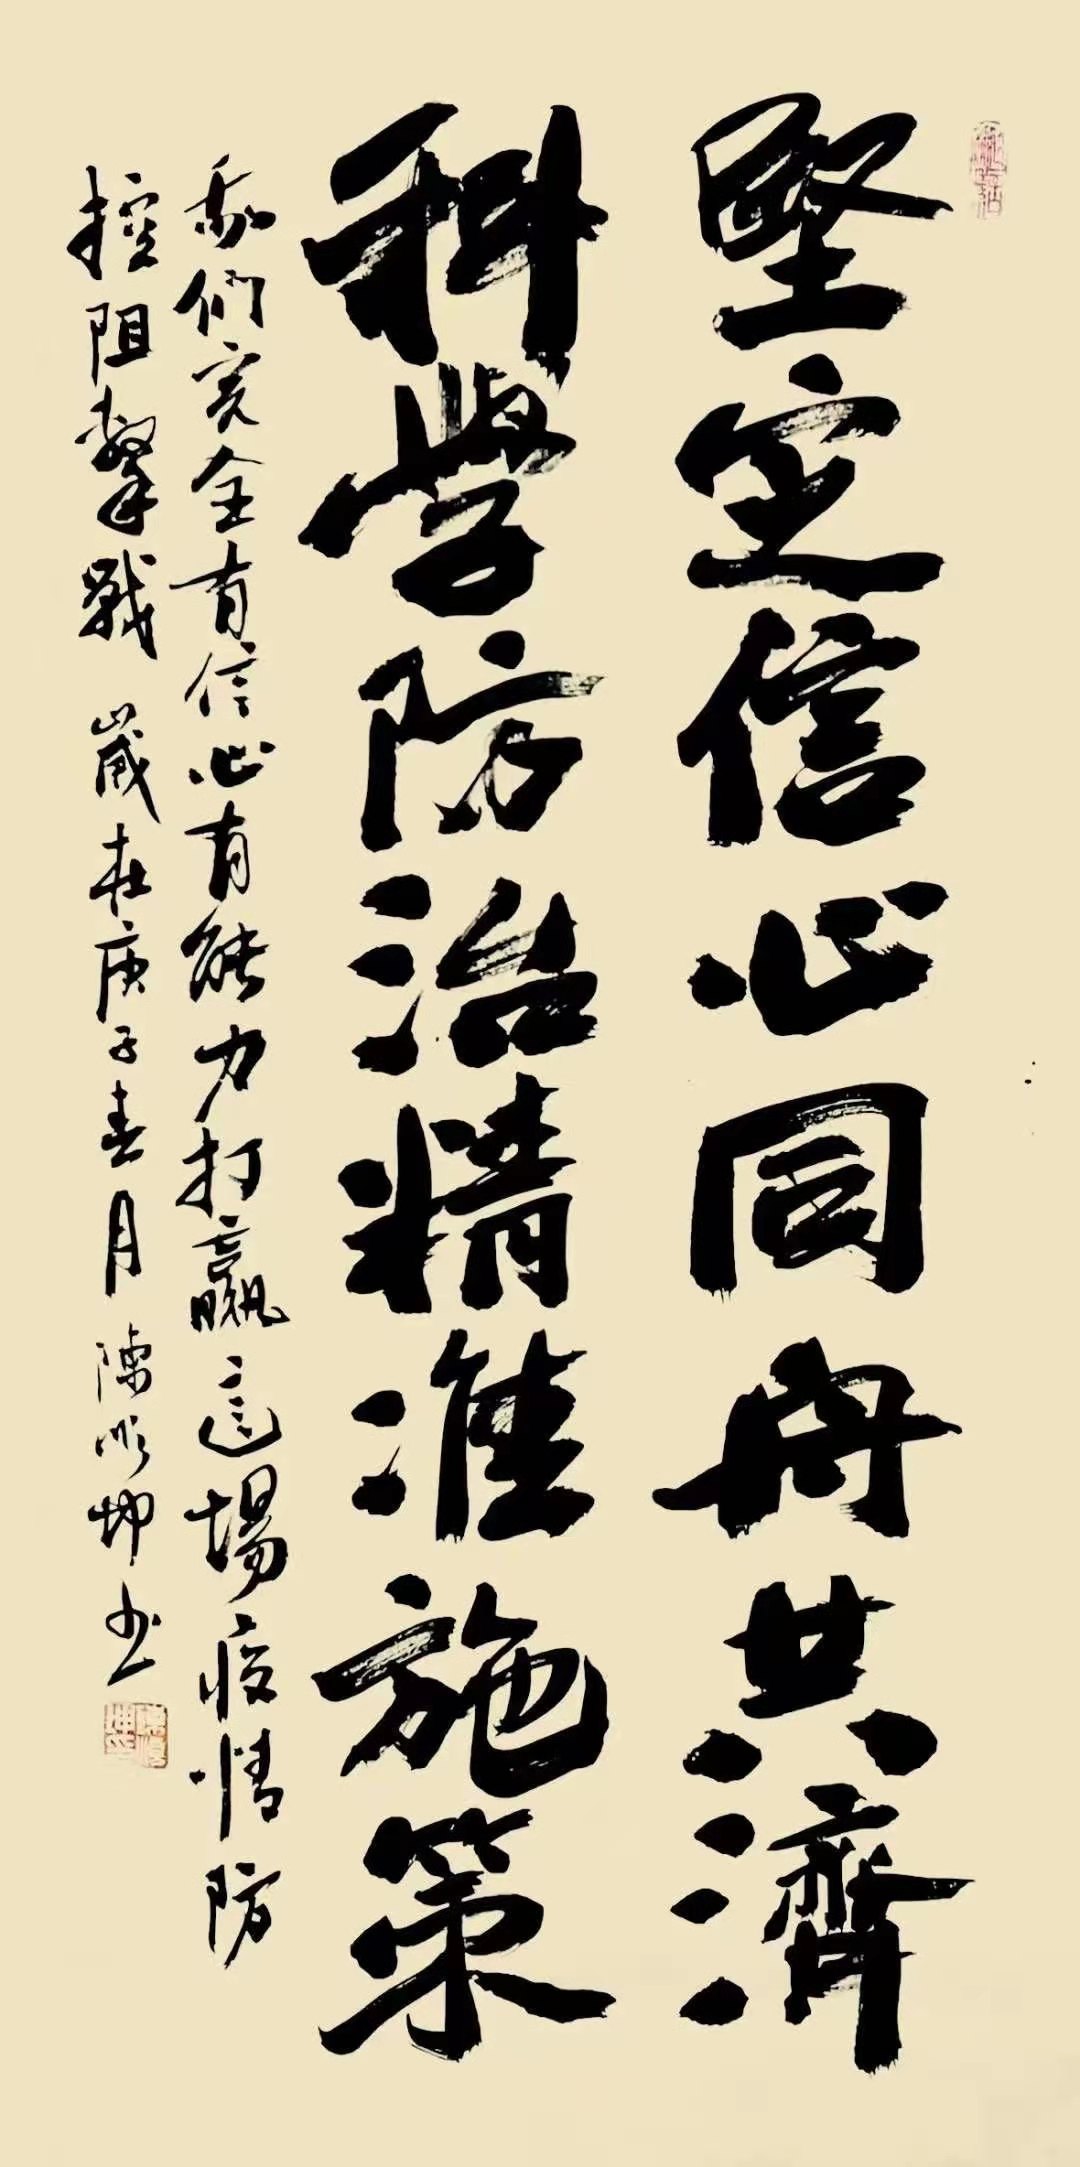 堅定信心同舟共濟
科学防治精准施策
我们完全有信心有能力打贏這場疫情防
控阻擊戰 歲在庚子春月 陳順坤书